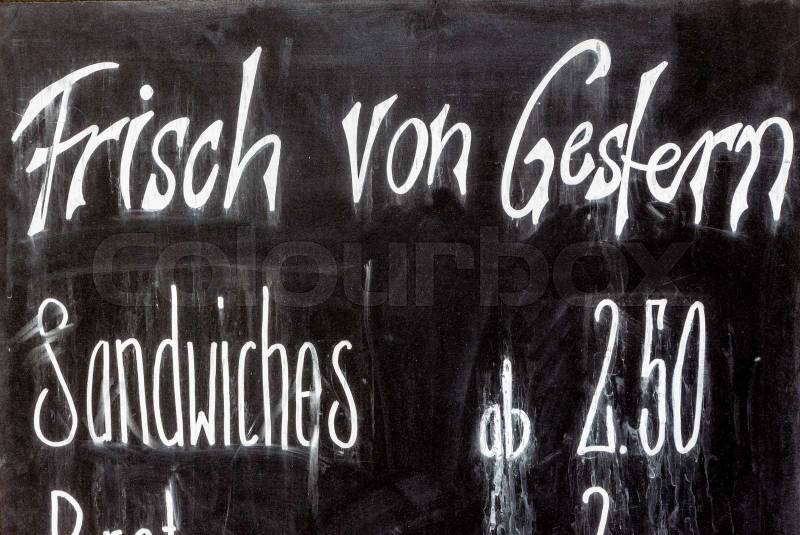 Frisch von Gestern
Sandwiches ab 2.50
colourbox